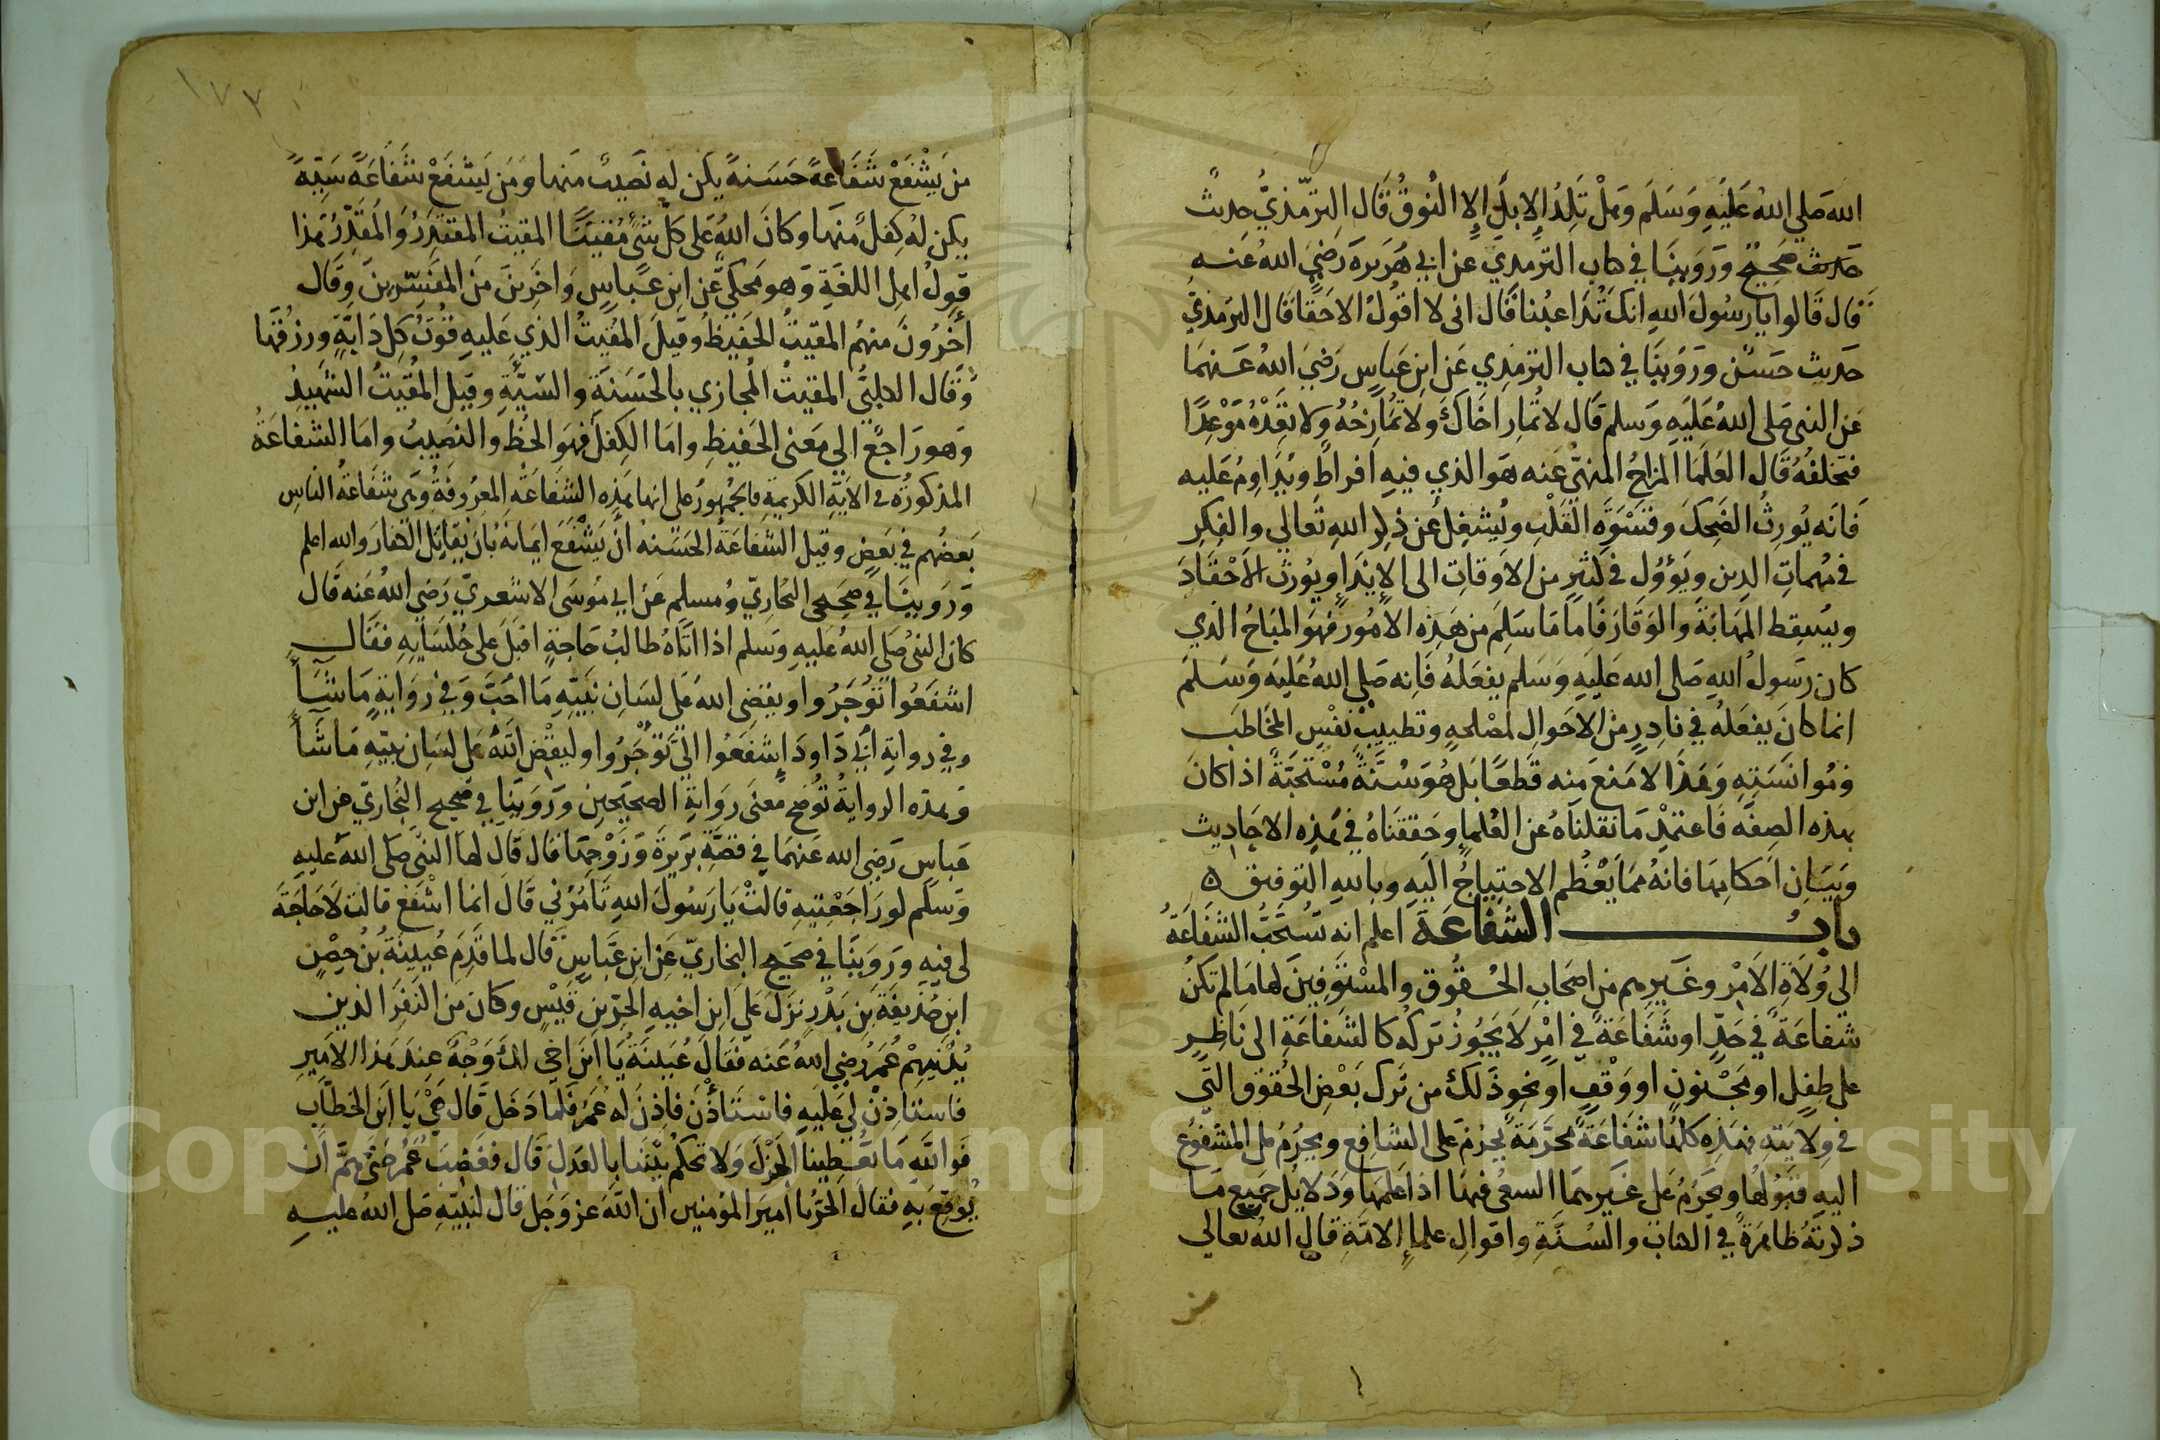 الله صلي الله عليه وسلم وهل تلد الابل إلا النوق قال الترمذي حديث
حديث صحيح وروينا في كتاب الترمذي عن ابي هريرة رضي الله عنه
قال قالوا يا رسول الله انك تداعبنا قال اني لا اقول الا حقا قال الترمذي
حديث حسن وروينا في كتاب الترمذي عن ابن عباس رضي الله عنهما
عن النبي صلى الله عليه وسلم قال لا تمار اخاك ولا تمازحه ولا تعده موعدا
فتخلفه قال العلما المزاح المنهي عنه هو الذي فيه افراط ويداوم عليه
فانه يورث الضحك وقسوة القلب ويشغل عن ذكر الله تعالي والفكر
في مهمات الدين ويؤول في كثير من الاوقات الى الايذا ويورث الاحقاد
ويسقط المهابة والوقار فاما ما سلم من هذه الامور فهو المباح الذي
كان رسول الله صلى الله عليه وسلم يفعله فانه صلى الله عليه وسلم
انما كان يفعله في نادر من الاحوال لمصلحه وتطييب نفس المخاطب
ومؤانسته وهذا لا منع منه قطعا بل هو سنة مستحبة اذا كان
بهذه الصفه فاعتمد ما نقلناه عن العلما وحققناه في هذه الاحاديث
وبيان احكامها فانه مما يعظم الاحتياج اليه وبالله التوفيق ه
باب الشفاعة اعلم انه تستحب الشفاعة
الى ولاة الامر وغيرهم من اصحاب الحقوق والمستوفين لها ما لم تكن
شفاعة في حد او شفاعة في امر لا يجوز تركه كالشفاعة الى ناظر
على طفل او مجنون او وقف او نحو ذلك من ترك بعض الحقوق التي
في ولايته فهذه كلها شفاعة محرمة يحرم على الشافع ويحرم على المشفوع
اليه قبولها ويحرم على غيرهما السعي فيها اذا علمها ودلايل جميع ما
ذكرته ظاهرة في الكتاب والسنة واقوال علماء الامة قال الله تعالي
من
١٧٣
من يشفع شفاعة حسنة يكن له نصيب منها ومن يشفع شفاعة سيئة
يكن له كفل منها وكان الله على كل شيء مقيتا المقيت المقتدر والمقدر هذا
قول اهل اللغة وهو محكي عن ابن عباس واخرين من المفسرين وقال
آخرون منهم المقيت الحفيظ وقيل المقيت الذي عليه قوت كل دابة ورزقها
وقال الكلبي المقيت المجازي بالحسنة والسيئة وقيل المقيت الشهيد
وهو راجع الي معنى الحفيظ واما الكفل فهو الحظ والنصيب واما الشفاعة
المذكورة في الاية الكريمة فالجمهور على انها هذه الشفاعة المعروفة وهي شفاعة الناس
بعضهم في بعض وقيل الشفاعة الحسنه ان يشفع ايمانه بان يقاتل الكفار والله اعلم
وروينا في صحيحي البخاري ومسلم عن ابي موسى الاشعري رضي الله عنه قال
كان النبي صلى الله عليه وسلم اذا اتاه طالب حاجة اقبل على جلسايه فقال
اشفعوا تؤجروا ويقضي الله على لسان نبيه ما احب وفي رواية ما شاء
وفي رواية أبي داود إشفعوا الي تؤجروا وليقض الله على لسان نبيه ما شأ
وهذه الرواية توضح معنى رواية الصحيحين وروينا في صحيح البخاري عن ابن
عباس رضي الله عنهما في قصة بريرة وزوجها قال قال لها النبي صلى الله عليه
وسلم لو راجعتيه قالت يا رسول الله تامرني قال انما اشفع قالت لا حاجة
لى فيه وروينا في صحيح البخاري عن ابن عباس قال لما قدم عيينة بن حصن
ابن حذيفة بن بدر نزل على ابن اخيه الحر بن قيس وكان من النفر الذين
يدنيهم عمر رضي الله عنه فقال عيينة يا ابن اخي لك وجه عند هذا الامير
فاستاذن لي عليه فاستأذن فاذن له عمر فلما دخل قال هي يا ابن الخطاب
فوالله ما تعطينا الجزل ولا تحكم بيننا بالعدل قال فغضب عمر حتى هم أن
يوقع به فقال الحر يا امير المؤمنين ان الله عز وجل قال لنبيه صلى الله عليه
Copyright © King Saud University